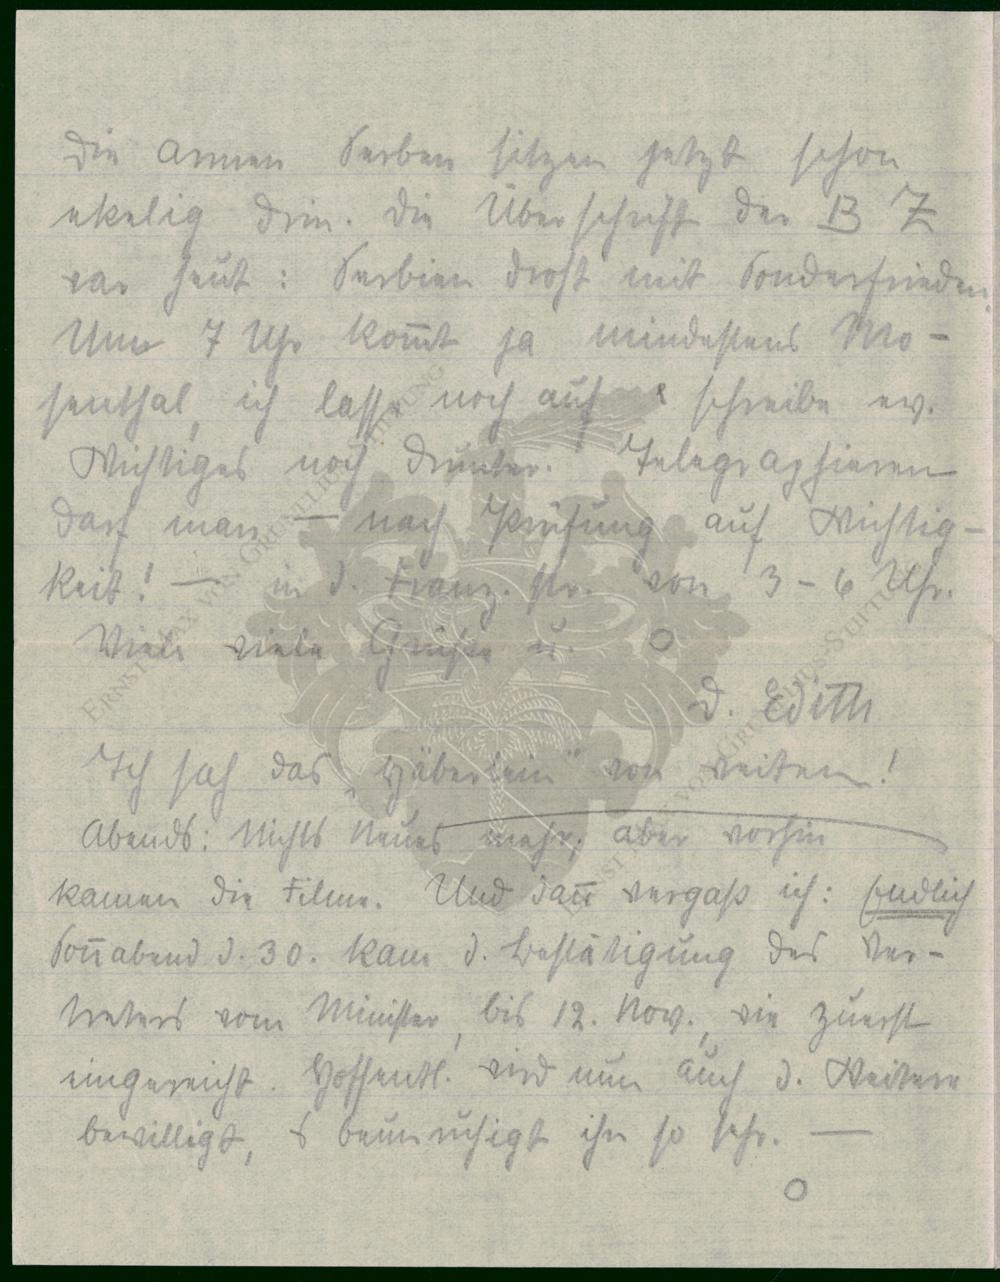 Die armen Serben sitzen jetzt schon
ekelig drin. Die Überschrift der B Z
war heut: Serbien droht mit Sonderfrieden.
Um 7 Uhr kom̅t ja mindestens Mo-
senthal, ich lasse noch auf & schreibe ev.
Wichtiges noch drunter. Telegraphieren
darf man — nach Prüfung auf Wichtig-
keit! — in d. Franz. Str. von 3 - 6 Uhr.
Viele viele Grüße u. O
D. Edith
Ich sah das „Häberlein" von weitem!
Abends: Nichts Neues mehr, aber vorhin
kamen die Filme. Und dan̅ vergaß ich: Endlich
Son̅abend d. 30. kam d. Bestätigung des Ver-
treters vom Minister, bis 12. Nov., wie zuerst
eingereicht. Hoffentl. wird nun auch d. Weitere
bewilligt, s beunruhigt ihn so sehr. —
O
ERNST MAX VON GRUNELIUS-STIFTUNG
ERNST MAX VON GRUNELIUS-STIFTUNG